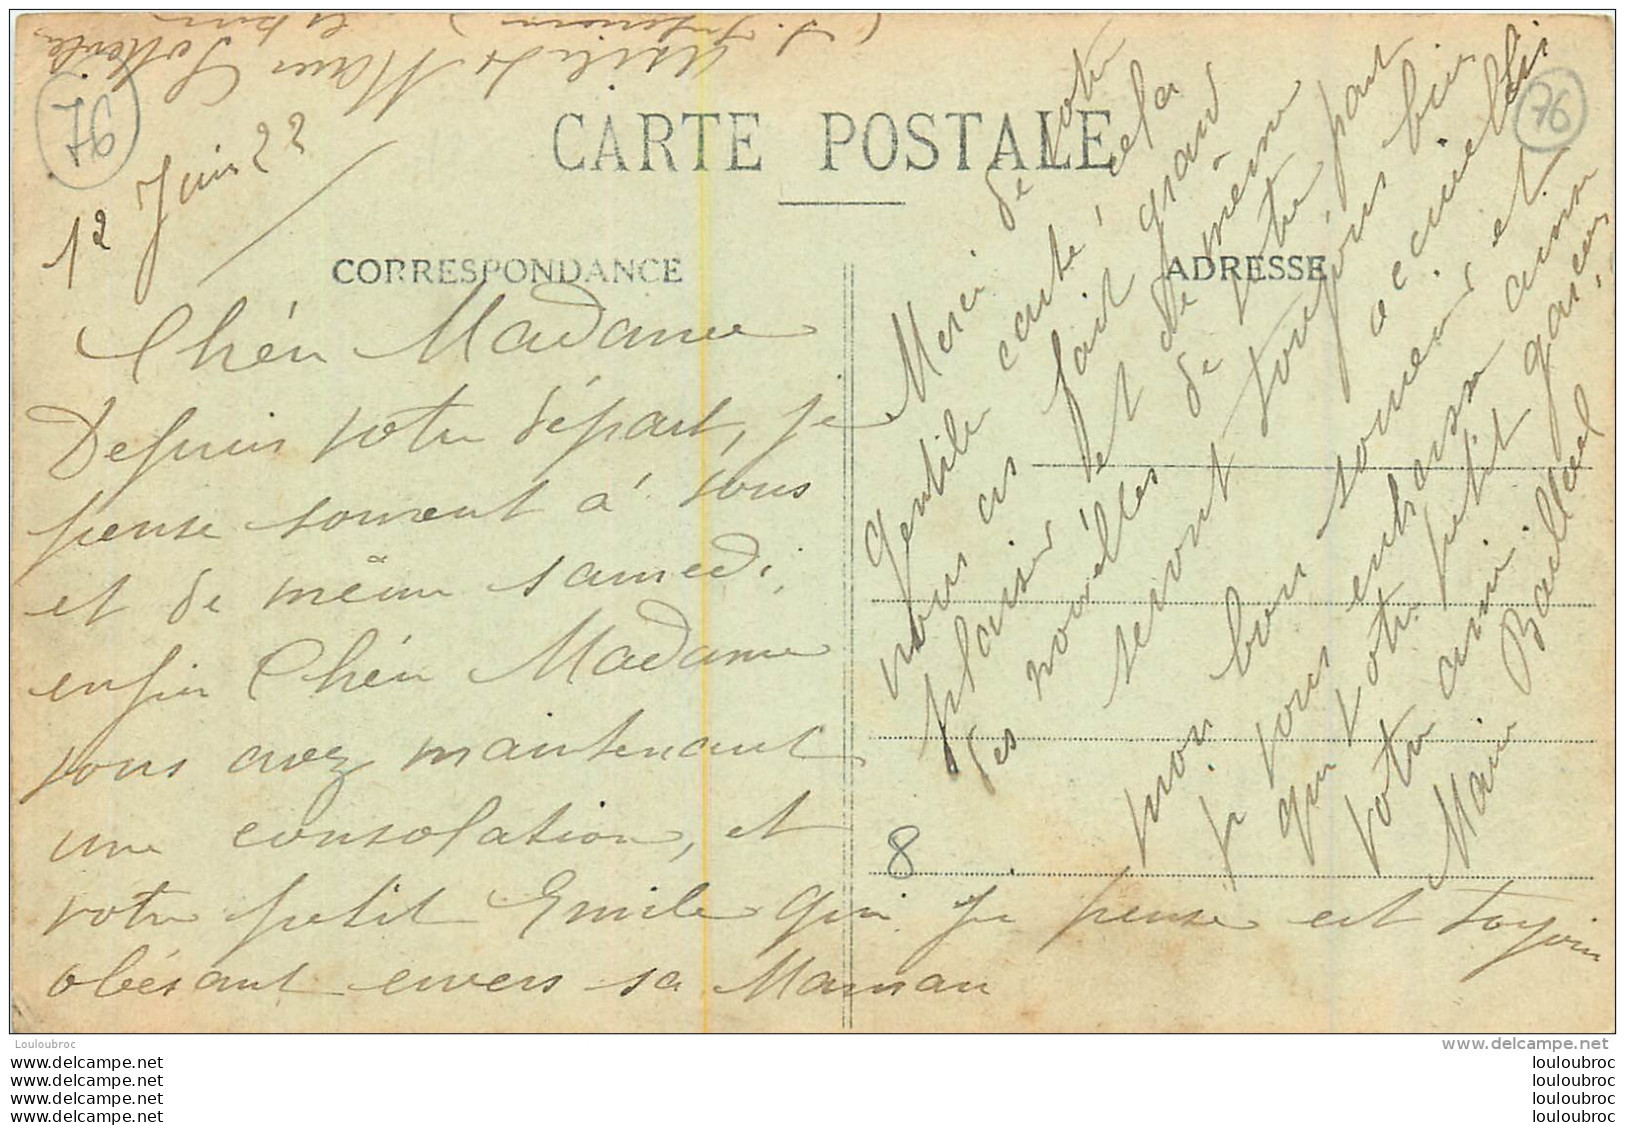 76
76
12 Juin 22
CARTE POSTALE
CORRESPONDANCE
ADRESSE
Chére Madame
Depuis votre départ, je
pense souvent à vous
et de même samedi,
enfin Chére Madame
vous avez maintenant
une consolation, et
votre petit Emile qui je pense est toujours
obéssant envers sa Maman
Merci de votre
gentile carte cela
nous as fait grand
plaisir et de même
des nouvelles de votre part
seront toujours bien
accueillis
mon bon souvenir et
je vous embrasse ainsi
que votre petit garçon
votre amie
Marie
8
Louloubroc
www.delcampe.net
www.delcampe.net
www.delcampe.net
www.delcampe.net
www.delcampe.net
louloubroc
louloubroc
louloubroc
louloubroc